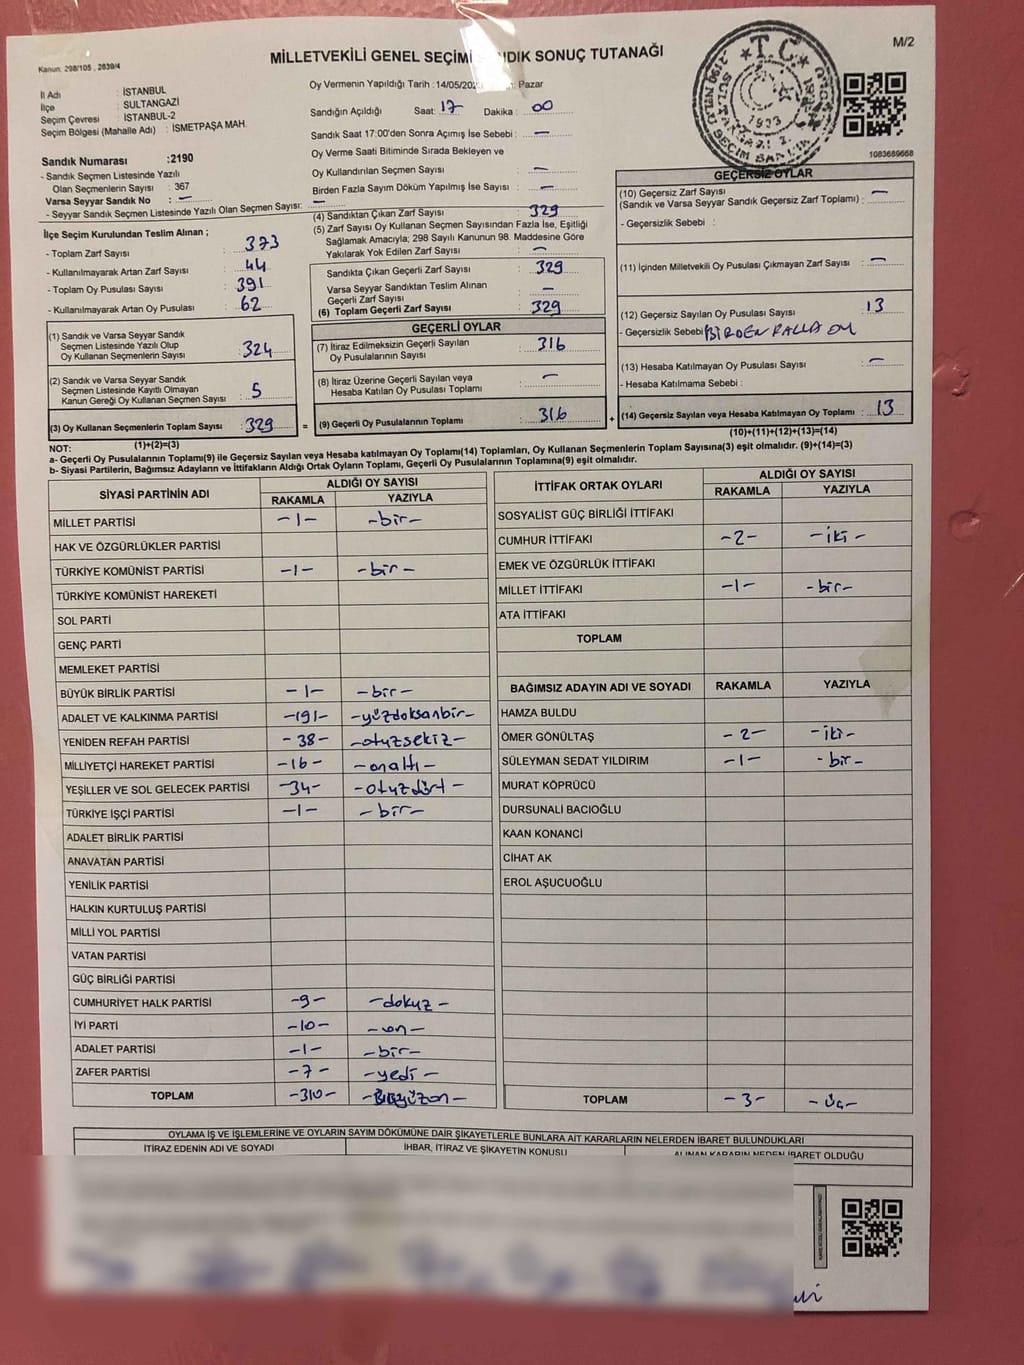 MİLLETVEKİLİ GENEL SEÇİMİ SANDIK SONUÇ TUTANAĞI
M/2
Kanun: 298/105 , 2839/4
İl Adı : İSTANBUL
İlçe : SULTANGAZİ
Seçim Çevresi : İSTANBUL-2
Seçim Bölgesi (Mahalle Adı) : İSMETPAŞA MAH.
Sandık Numarası :2190
- Sandık Seçmen Listesinde Yazılı
Olan Seçmenlerin Sayısı : 367
Varsa Seyyar Sandık No : —
- Seyyar Sandık Seçmen Listesinde Yazılı Olan Seçmen Sayısı: —
Oy Vermenin Yapıldığı Tarih :14/05/202 Pazar
Sandığın Açıldığı Saat: 17 Dakika : 00
Sandık Saat 17:00'den Sonra Açımış İse Sebebi : —
Oy Verme Saati Bitiminde Sırada Bekleyen ve
Oy Kullandırılan Seçmen Sayısı : —
Birden Fazla Sayım Döküm Yapılmış İse Sayısı : —
T.C.
1933
1083689668
İlçe Seçim Kurulundan Teslim Alınan ;
- Toplam Zarf Sayısı : 373
- Kullanılmayarak Artan Zarf Sayısı : 44
- Toplam Oy Pusulası Sayısı : 391
- Kullanılmayarak Artan Oy Pusulası : 62
(1) Sandık ve Varsa Seyyar Sandık
Seçmen Listesinde Yazılı Olup
Oy Kullanan Seçmenlerin Sayısı : 324
(2) Sandık ve Varsa Seyyar Sandık
Seçmen Listesinde Kayıtlı Olmayan
Kanun Gereği Oy Kullanan Seçmen Sayısı : 5
(3) Oy Kullanan Seçmenlerin Toplam Sayısı : 329
(1)+(2)=(3)
(4) Sandıktan Çıkan Zarf Sayısı : 329
(5) Zarf Sayısı Oy Kullanan Seçmen Sayısından Fazla İse, Eşitliği
Sağlamak Amacıyla; 298 Sayılı Kanunun 98. Maddesine Göre
Yakılarak Yok Edilen Zarf Sayısı : —
Sandıkta Çıkan Geçerli Zarf Sayısı : 329
Varsa Seyyar Sandıktan Teslim Alınan
Geçerli Zarf Sayısı : —
(6) Toplam Geçerli Zarf Sayısı : 329
GEÇERLİ OYLAR
(7) İtiraz Edilmeksizin Geçerli Sayılan
Oy Pusulalarının Sayısı : 316
(8) İtiraz Üzerine Geçerli Sayılan veya
Hesaba Katılan Oy Pusulası Toplamı : —
= (9) Geçerli Oy Pusulalarının Toplamı : 316 +
GEÇERSİZ OYLAR
(10) Geçersiz Zarf Sayısı —
(Sandık ve Varsa Seyyar Sandık Geçersiz Zarf Toplamı) :
- Geçersizlik Sebebi :
(11) İçinden Milletvekili Oy Pusulası Çıkmayan Zarf Sayısı : —
(12) Geçersiz Sayılan Oy Pusulası Sayısı : 13
- Geçersizlik Sebebi : BİRDEN FAZLA OY
(13) Hesaba Katılmayan Oy Pusulası Sayısı : —
- Hesaba Katılmama Sebebi :
(14) Geçersiz Sayılan veya Hesaba Katılmayan Oy Toplamı : 13
(10)+(11)+(12)+(13)=(14)
NOT:
a- Geçerli Oy Pusulalarının Toplamı(9) ile Geçersiz Sayılan veya Hesaba katılmayan Oy Toplamı(14) Toplamları, Oy Kullanan Seçmenlerin Toplam Sayısına(3) eşit olmalıdır. (9)+(14)=(3)
b- Siyasi Partilerin, Bağımsız Adayların ve İttifakların Aldığı Ortak Oyların Toplamı, Geçerli Oy Pusulalarının Toplamına(9) eşit olmalıdır.
SİYASİ PARTİNİN ADI ALDIĞI OY SAYISI
RAKAMLA YAZIYLA
MİLLET PARTİSİ -1- -bir-
HAK VE ÖZGÜRLÜKLER PARTİSİ
TÜRKİYE KOMÜNİST PARTİSİ -1- -bir-
TÜRKİYE KOMÜNİST HAREKETİ
SOL PARTİ
GENÇ PARTİ
MEMLEKET PARTİSİ
BÜYÜK BİRLİK PARTİSİ -1- -bir-
ADALET VE KALKINMA PARTİSİ -191- -yüzdoksanbir-
YENİDEN REFAH PARTİSİ -38- -otuzsekiz-
MİLLİYETÇİ HAREKET PARTİSİ -16- -onaltı-
YEŞİLLER VE SOL GELECEK PARTİSİ -34- -otuzdört-
TÜRKİYE İŞÇİ PARTİSİ -1- -bir-
ADALET BİRLİK PARTİSİ
ANAVATAN PARTİSİ
YENİLİK PARTİSİ
HALKIN KURTULUŞ PARTİSİ
MİLLİ YOL PARTİSİ
VATAN PARTİSİ
GÜÇ BİRLİĞİ PARTİSİ
CUMHURİYET HALK PARTİSİ -9- -dokuz-
İYİ PARTİ -10- -on-
ADALET PARTİSİ -1- -bir-
ZAFER PARTİSİ -7- -yedi-
TOPLAM -310-
İTTİFAK ORTAK OYLARI ALDIĞI OY SAYISI
RAKAMLA YAZIYLA
SOSYALİST GÜÇ BİRLİĞİ İTTİFAKI
CUMHUR İTTİFAKI -2- -iki-
EMEK VE ÖZGÜRLÜK İTTİFAKI
MİLLET İTTİFAKI -1- -bir-
ATA İTTİFAKI
TOPLAM
BAĞIMSIZ ADAYIN ADI VE SOYADI RAKAMLA YAZIYLA
HAMZA BULDU
ÖMER GÖNÜLTAŞ -2- -iki-
SÜLEYMAN SEDAT YILDIRIM -1- -bir-
MURAT KÖPRÜCÜ
DURSUNALİ BACIOĞLU
KAAN KONANCİ
CİHAT AK
EROL AŞUCUOĞLU
TOPLAM -3- -üç-
OYLAMA İŞ VE İŞLEMLERİNE VE OYLARIN SAYIM DÖKÜMÜNE DAİR ŞİKAYETLERLE BUNLARA AİT KARARLARIN NELERDEN İBARET BULUNDUKLARI
İTİRAZ EDENİN ADI VE SOYADI İHBAR, İTİRAZ VE ŞİKAYETİN KONUSU ALINAN KARARIN NEDEN İBARET OLDUĞU